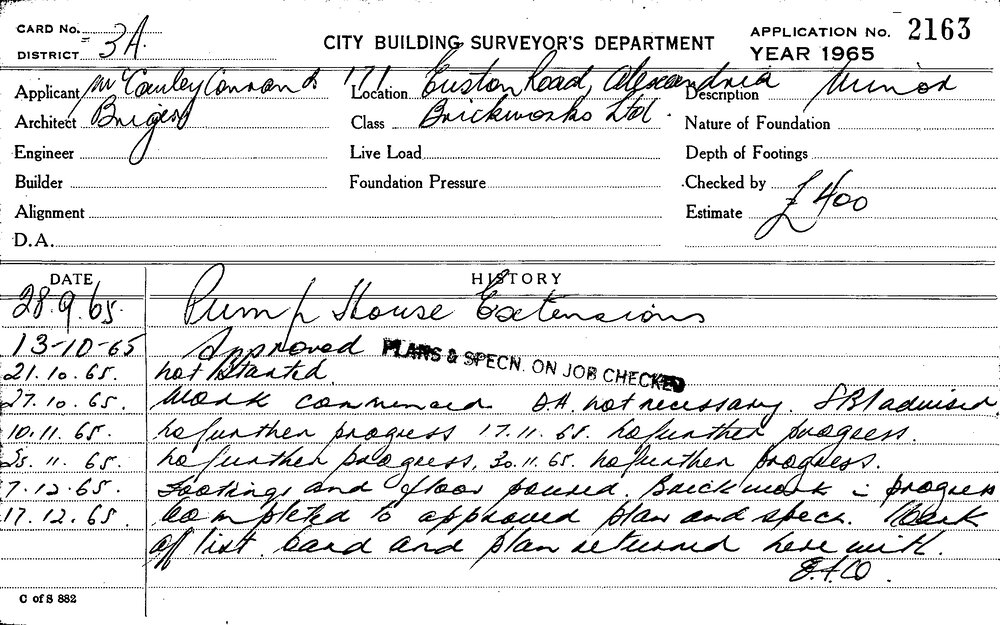 CARD No.
DISTRICT 3A.
CITY BUILDING SURVEYOR'S DEPARTMENT
APPLICATION No. 2163
YEAR 1965
Applicant McCauley Connan &
Location 171 Euston Road, Alexandria
Description Minor
Architect
Class Brickworks Ltd.
Nature of Foundation
Engineer
Live Load
Depth of Footings
Builder
Foundation Pressure
Checked by
Alignment
Estimate £400
D.A.
DATE
HISTORY
28.9.65. Pump House Extensions
13-10-65 Approved PLANS & SPECN. ON JOB CHECKED
21.10.65. not Started.
27.10.65. Work commenced. D.A. not necessary. SBI advised.
10.11.65. No further progress 17.11.65. No further progress.
25.11.65. No further progress, 30.11.65. No further progress.
7.12.65. Footings and floor poured. Brickwork in progress
17.12.65. Completed to approved plan and specn. Mark
off list. Card and plan returned here with.
C of S 882